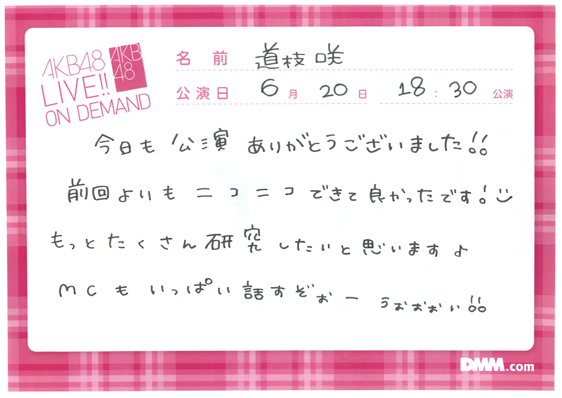 AKB48
LIVE!!
ON DEMAND
AKB
48
名前 道枝咲
公演日 6月20日 18:30公演
今日も公演ありがとうございました!!
前回よりもニコニコできて良かったです!
もっとたくさん研究したいと思いますよ
MCもいっぱい話すぞぉー うぉぉぉぃ!!
DMM.com